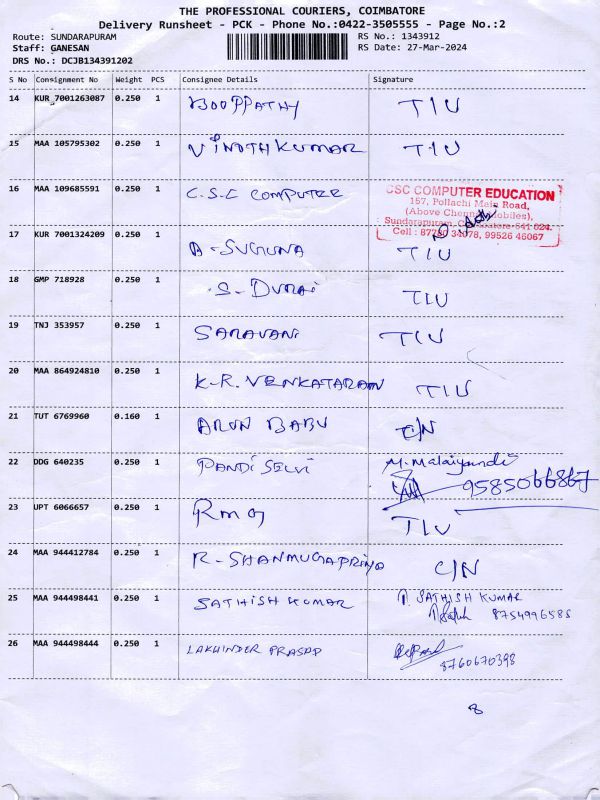 THE PROFESSIONAL COURIERS, COIMBATORE
Delivery Runsheet - PCK - Phone No.:0422-3505555 - Page No.:2
Route: SUNDARAPURAM RS No.: 1343912
Staff: GANESAN RS Date: 27-Mar-2024
DRS No.: DCJB134391202
S No Consignment No Weight PCS Consignee Details Signature
14 KUR 7001263087 0.250 1 BOOPPATHY TIU
15 MAA 105795302 0.250 1 VINOTHKUMAR TIU
16 MAA 109685591 0.250 1 C.S.C COMPUTER
CSC COMPUTER EDUCATION
157, Pollachi Main Road,
(Above Chennai Mobiles),
Sundarapuram, Coimbatore-641 024.
Cell : 87780 34078, 99526 46067
17 KUR 7001324209 0.250 1 A-SUGUNA TIU
18 GMP 718928 0.250 1 S-DURAI TIU
19 TNJ 353957 0.250 1 SARAVANI TIU
20 MAA 864924810 0.250 1 K-R.VENKATARAMAN TIU
21 TUT 6769960 0.160 1 ARUN BABU C/N
22 DDG 640235 0.250 1 PANDISELVI M.Malaiyandi
9585066867
23 UPT 6066657 0.250 1 RMG TIU
24 MAA 944412784 0.250 1 R-SHANMUGAPRIYA C/N
25 MAA 944498441 0.250 1 SATHISH KUMAR P. SATHISH KUMAR
8754996585
26 MAA 944498444 0.250 1 LAKHINDER PRASAD
8760670398
8